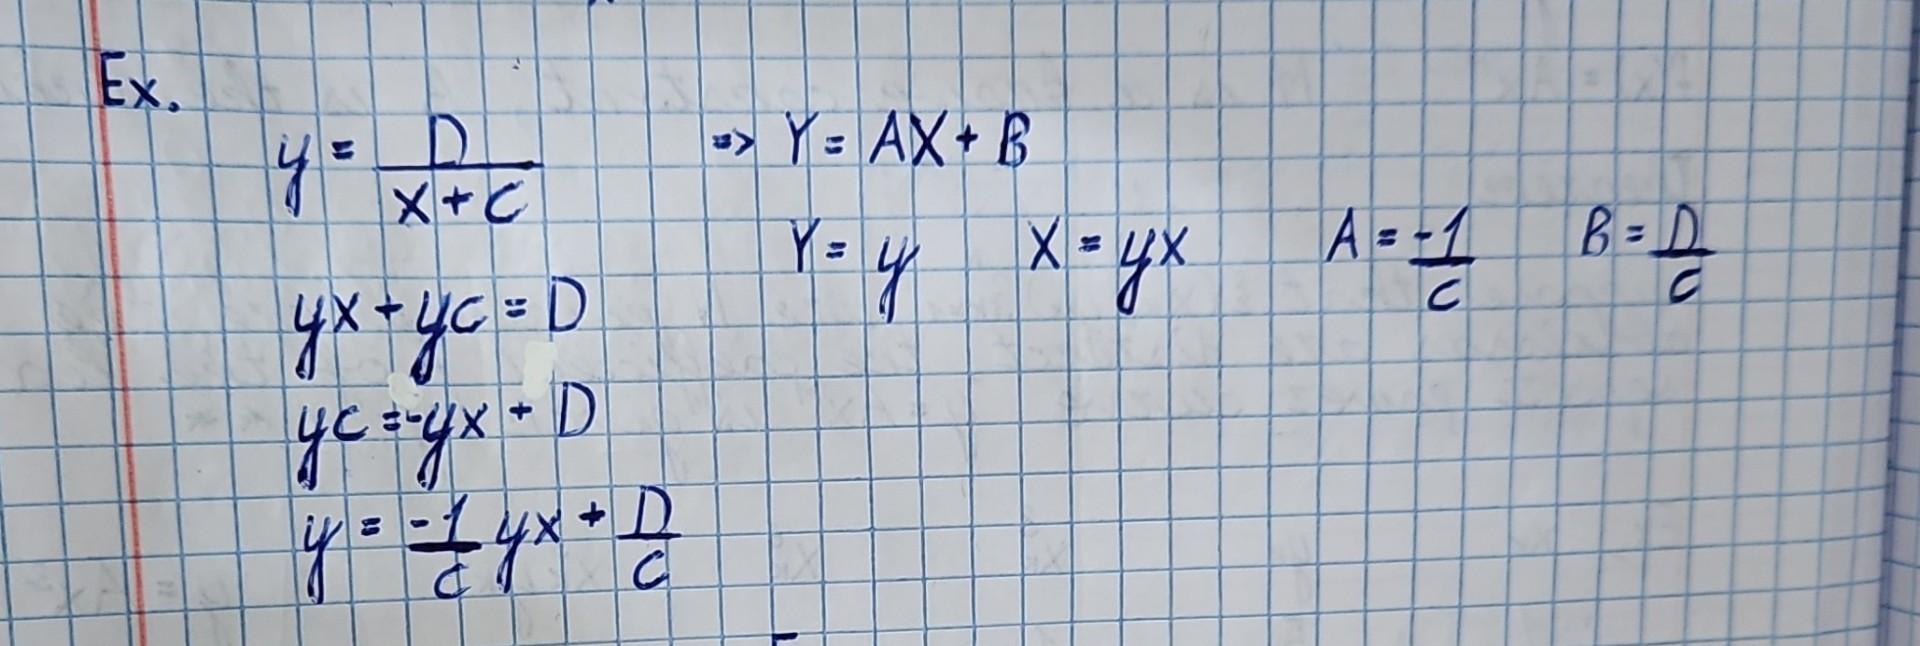 Ex.
y = D/(x + C) => Y = AX + B
Y = y X = yx A = -1/C B = D/C
yx + yC = D
yC = -yx + D
y = -1/C yx + D/C